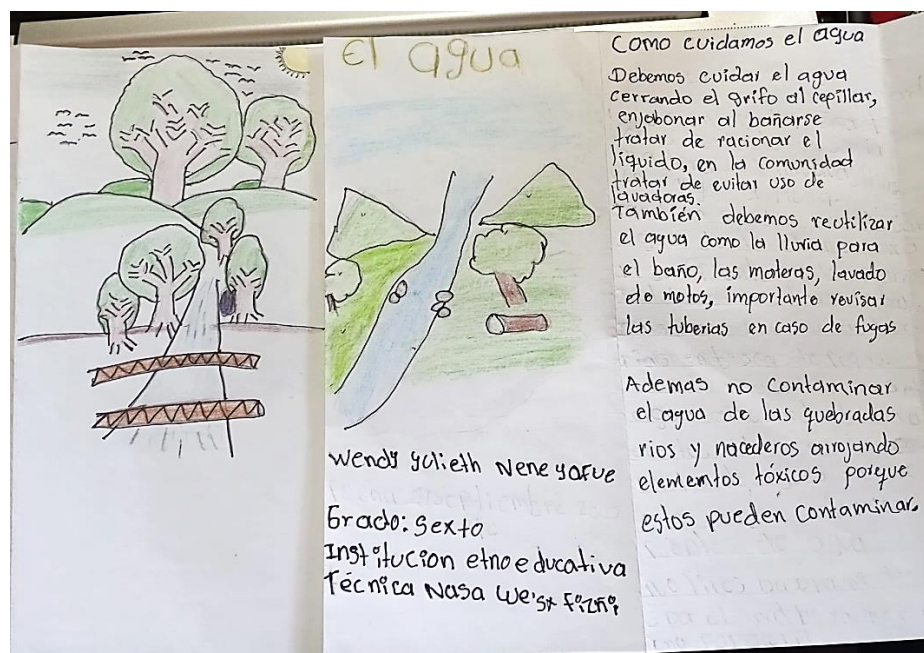 El agua
Wendy yulieth Nene yafue
Grado: Sexto
Institucion etnoeducativa
Técnica Nasa We'sx
Como cuidamos el agua
Debemos cuidar el agua
cerrando el grifo al cepillar,
enjabonar al bañarse
tratar de racionar el
líquido, en la comunidad
tratar de evitar uso de
lavadoras.
También debemos reutilizar
el agua como la lluvia para
el baño, las materas, lavado
de motos, importante revisar
las tuberias en caso de fugas
Ademas no contaminar
el agua de las quebradas
rios y nacederos arrojando
elementos tóxicos porque
estos pueden contaminar.